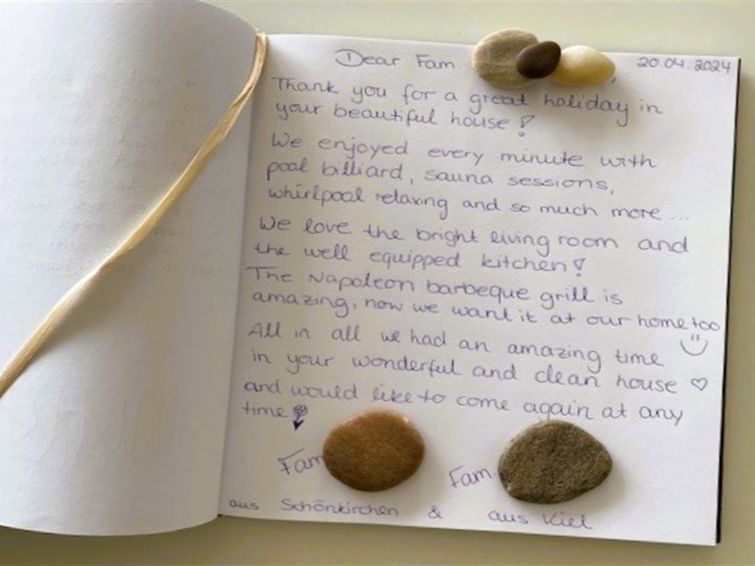 Dear Fam.
20.04.2024
Thank you for a great holiday in
your beautiful house!
We enjoyed every minute with
pool billiard, sauna sessions,
whirlpool relaxing and so much more...
We love the bright living room and
the well equipped kitchen!
The Napoleon barbeque grill is
amazing, now we want it at our home too
All in all we had an amazing time
in your wonderful and clean house ♡
and would like to come again at any
time
Fam Fam.
aus Schönkirchen & aus Kiel